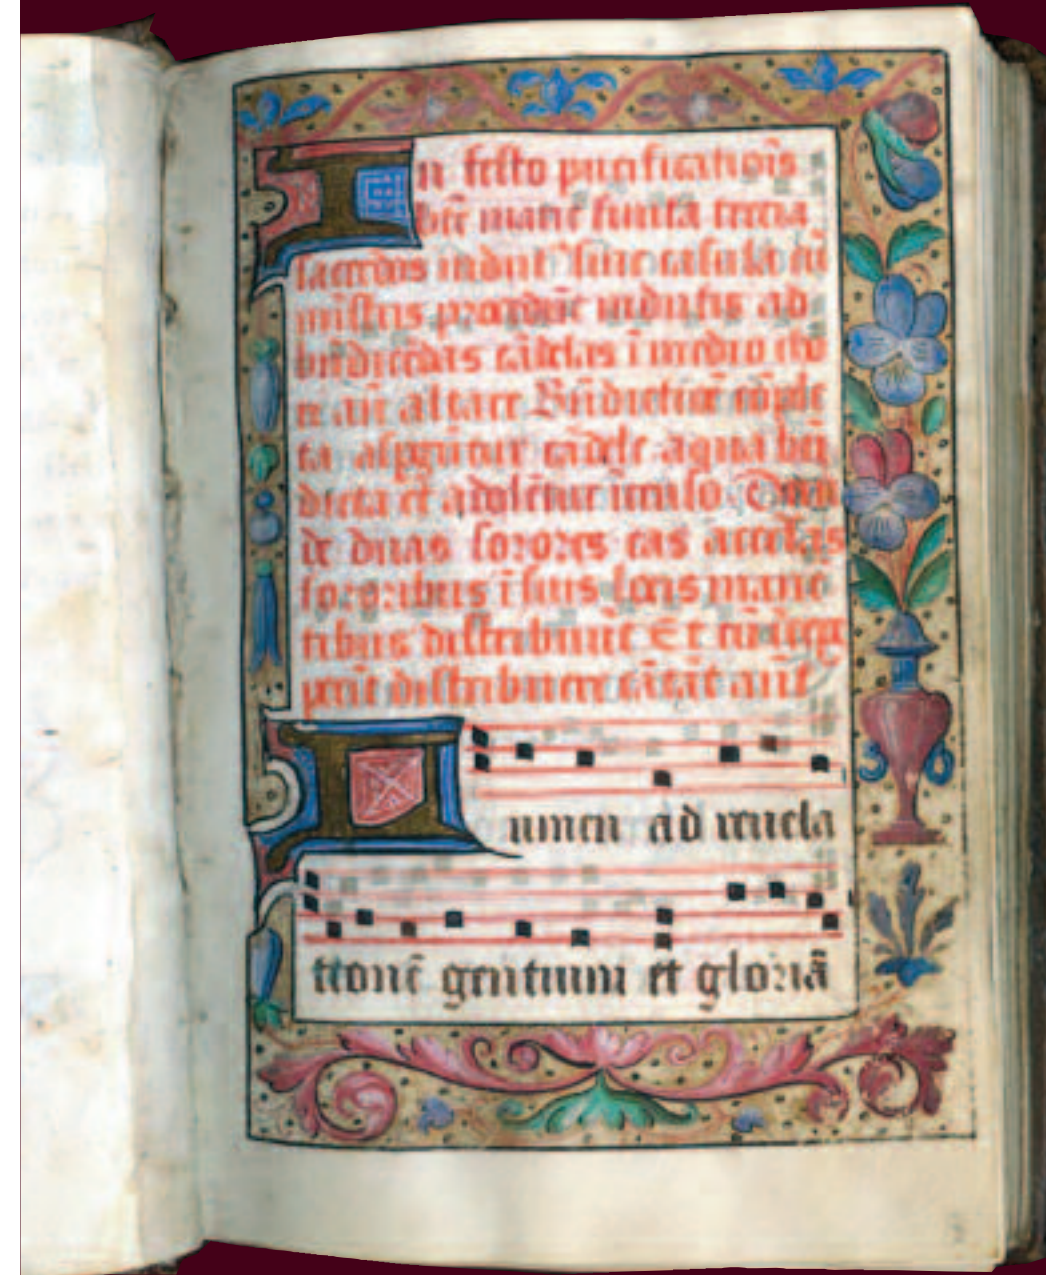 In festo purificatiois
bte marie finita tercia
sacerdos indut sine casula cu
mistris procedut indutis ad
bndicedas cadelas i medio cho
ri ate altare Bndictioe cople
ta aspgutur cadele aqua ben
dicta et adoletur inceso
de duas sorores eas accesas
sororibus i suis locis mane
tibus distribuut Et cu
distribuere catat
Lumen ad reuela
tione gentium et gloriã